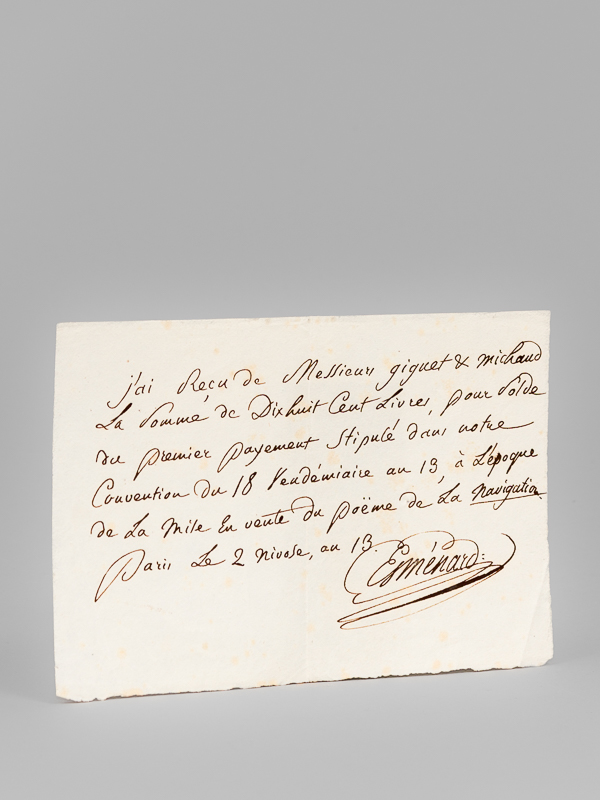 j'ai Reçu de Messieurs giguet & michaud
La Somme de Dixhuit Cent Livres, pour Solde
du premier payement Stipulé dans notre
Convention du 18 Vendémiaire an 13, à L'époque
de La mise En vente du poëme de La navigation
Paris Le 2 nivose, an 13.
Esménard: